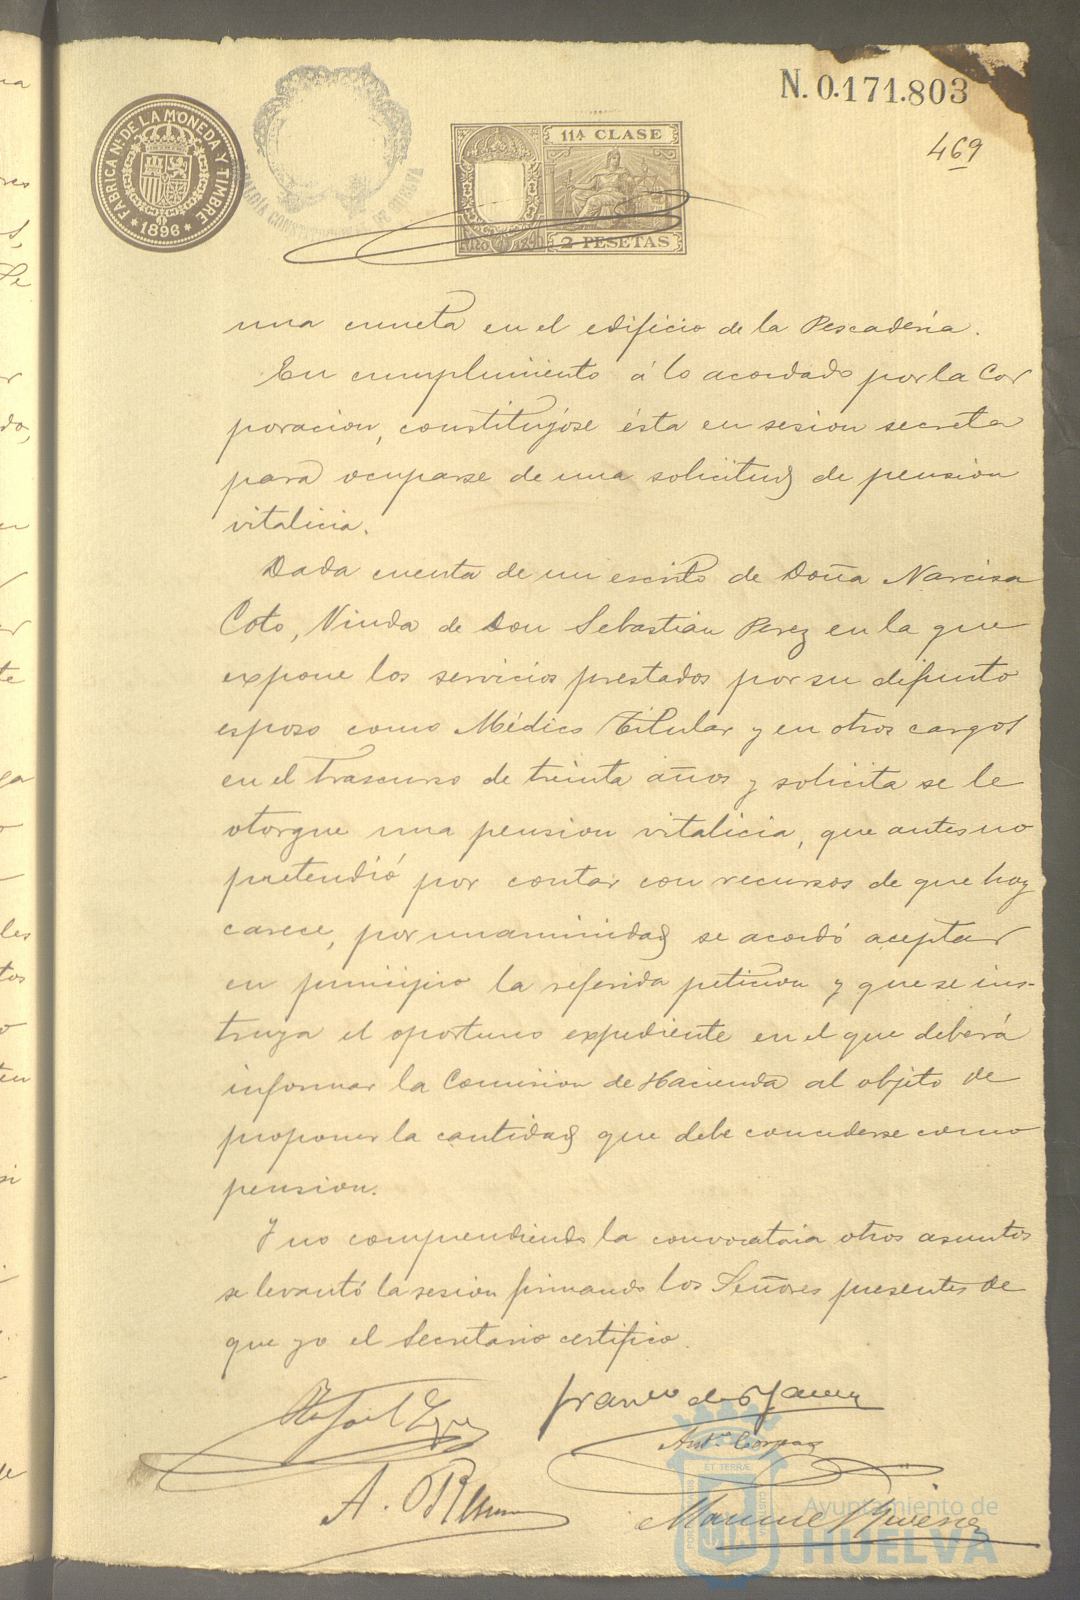 N. 0.171.803
469
FABRICA NL. DE LA MONEDA Y TIMBRE
1896
ALCALDIA CONSTITUCIONAL DE HUELVA
11A CLASE
2 PESETAS
una cuneta en el edificio de la Pescadería.
En cumplimiento á lo acordado por la Cor
poracion, constituyóse ésta en sesion secreta
para ocuparse de una solicitud de pension
vitalicia.
Dada cuenta de un escrito de Doña Narcisa
Coto, Viuda de Don Sebastian Perez en la que
expone los servicios prestados por su difunto
esposo como Médico Titular y en otros cargos
en el trascurso de treinta años y solicita se le
otorgue una pension vitalicia, que antes no
pretendió por contar con recursos de que hoy
carece, por unanimidad se acordó aceptar
en principio la referida peticion y que se ins-
truya el oportuno expediente en el que deberá
informar la Comision de Hacienda al objeto de
proponer la cantidad que debe concederse como
pension.
Y no comprendiendo la convocatoria otros asuntos
se levantó la sesion firmando los Señores presentes de
que yo el Secretario certifico.
Rafael
Franco de
Anto. Corpas
A.
Manuel
ET TERRÆ
Ayuntamiento de
HUELVA